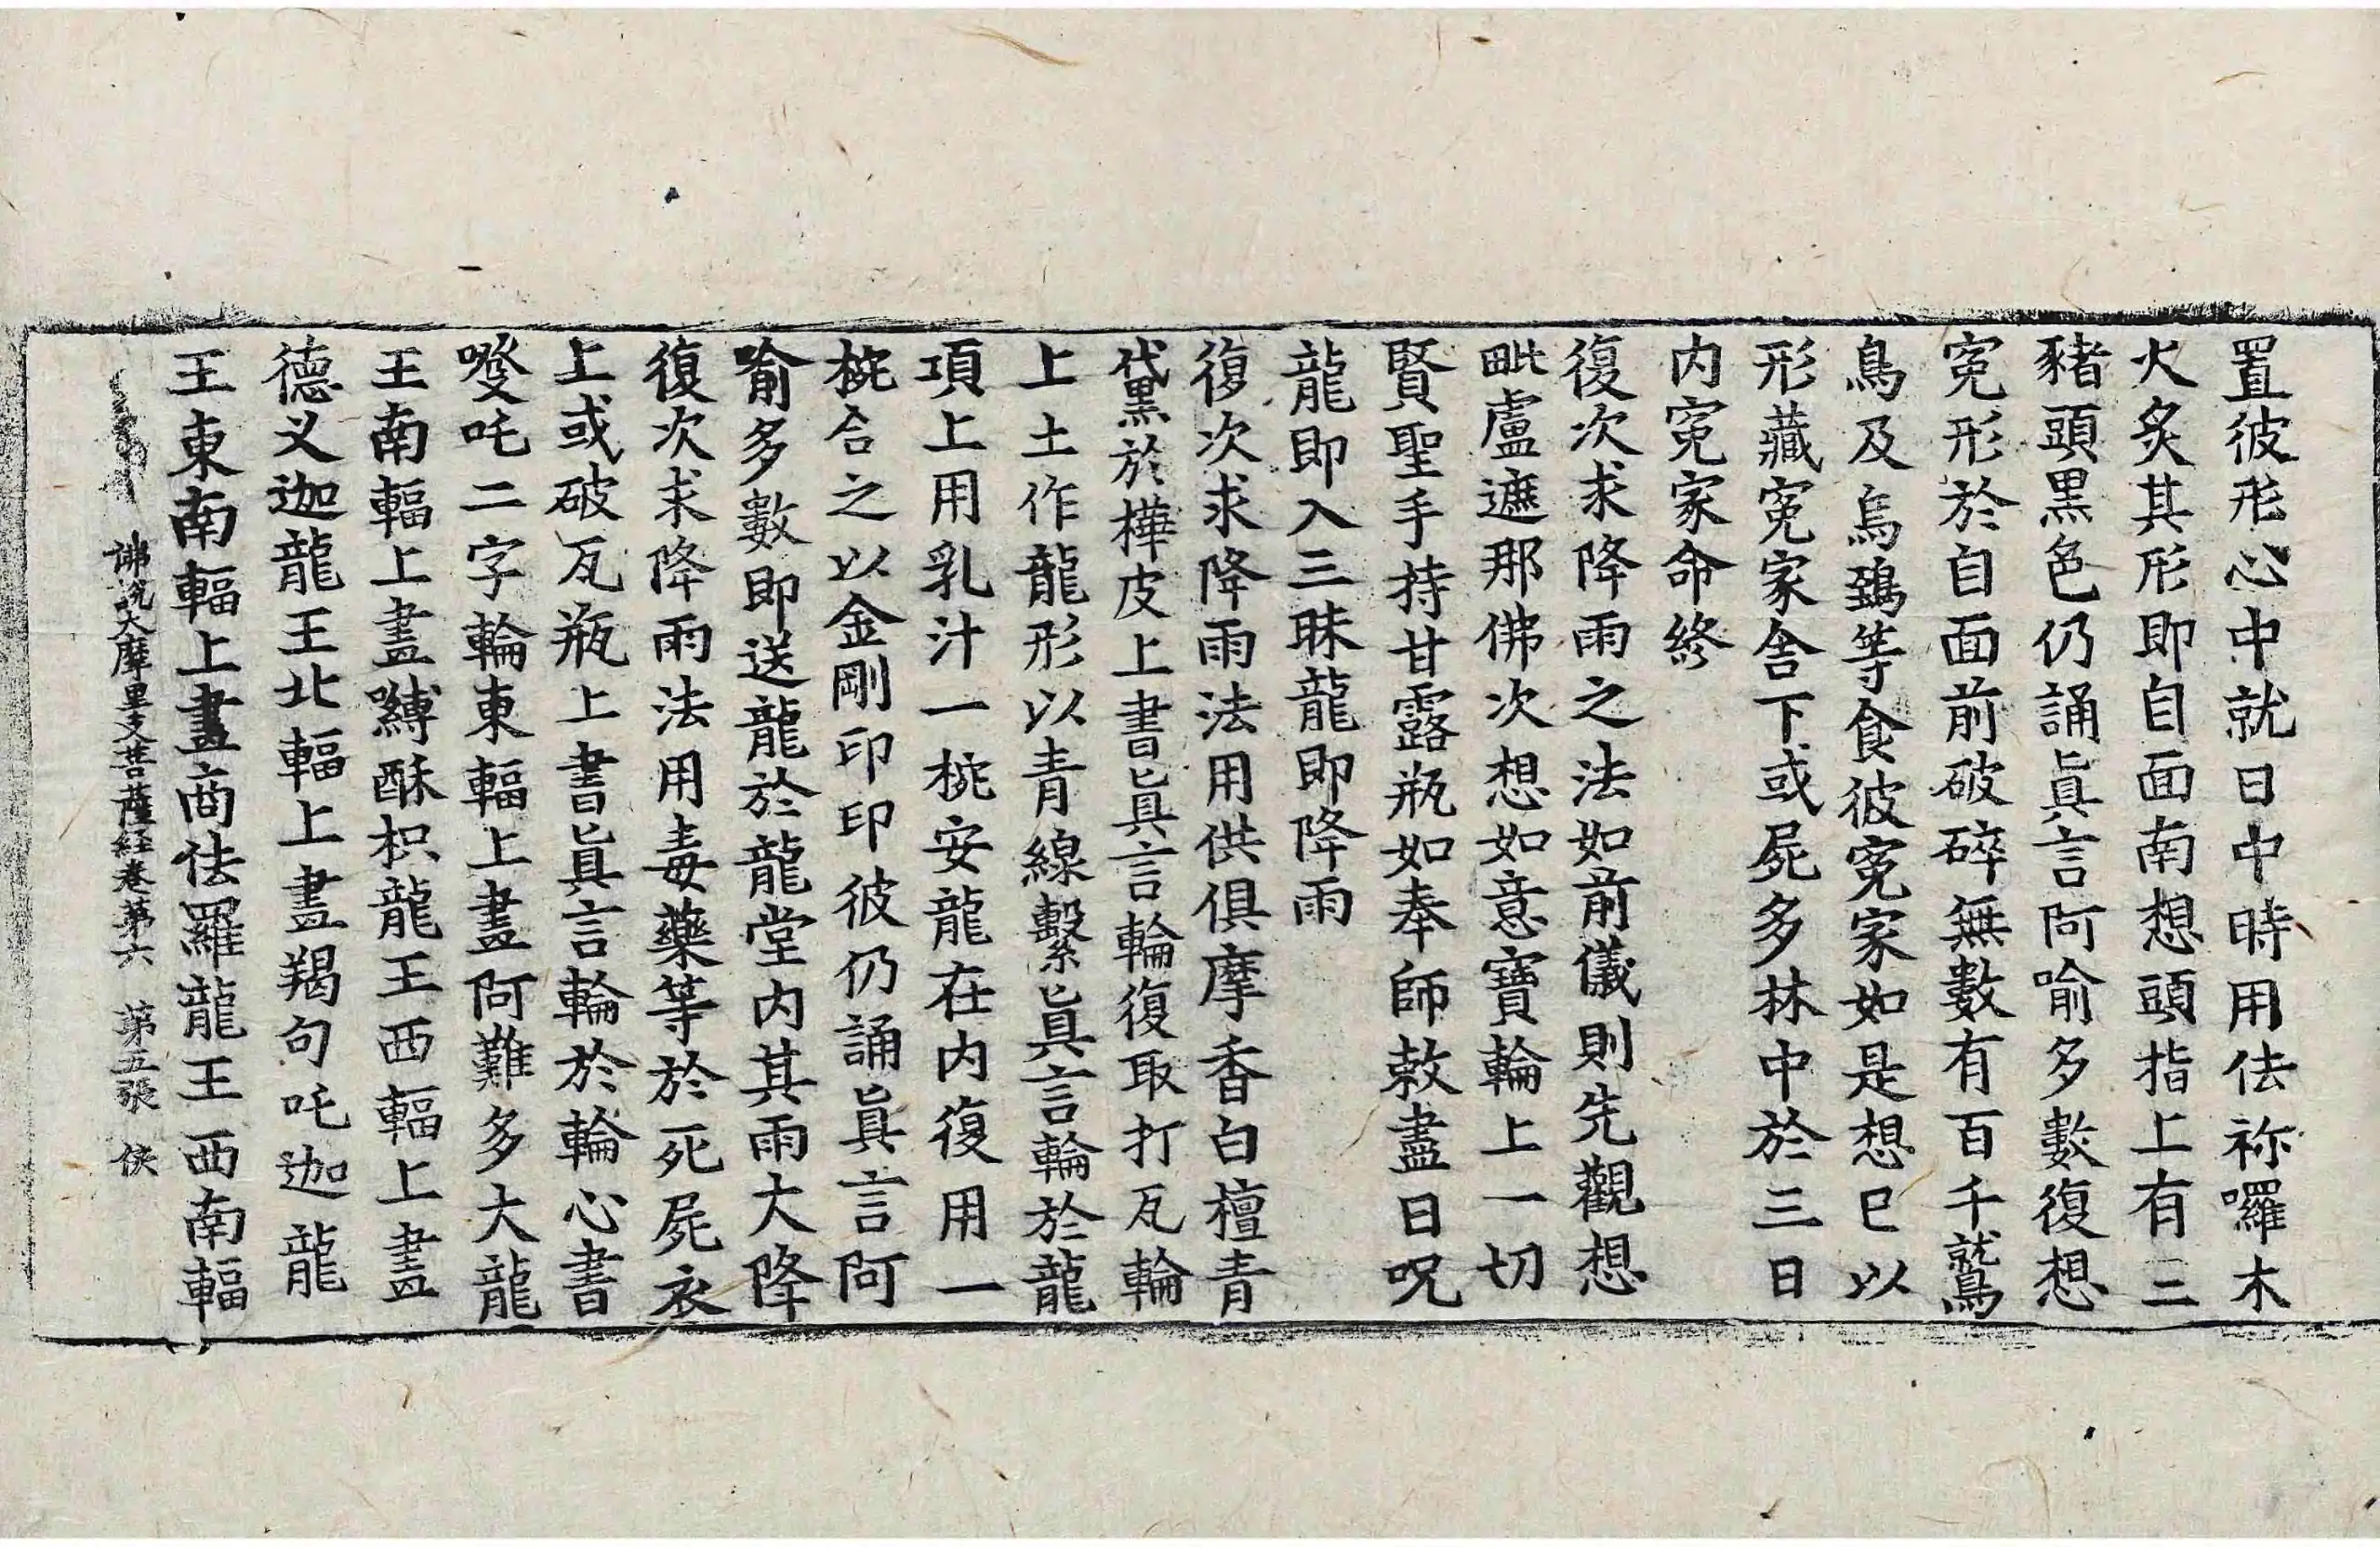 置彼形心中就日中時用佉祢囉木
火炙其形即自面南想頭指上有二
豬頭黑色仍誦眞言阿喻多數復想
寃形於自面前破碎無數有百千鷲
鳥及烏鵄等食彼寃家如是想已以
形藏寃家舍下或屍多林中於三日
内寃家命終
復次求降雨之法如前儀則先觀想
毗盧遮那佛次想如意寶輪上一切
賢聖手持甘露瓶如奉師敕盡日呪
龍即入三昧龍即降雨
復次求降雨法用供俱摩香白檀青
黛於樺皮上書眞言輪復取打瓦輪
上土作龍形以青線繫眞言輪於龍
項上用乳汁一椀安龍在内復用一
椀合之以金剛印印彼仍誦眞言阿
喻多數即送龍於龍堂内其雨大降
復次求降雨法用毒藥等於死屍衣
上或破瓦瓶上書眞言輪於輪心書
㗚吒二字輪東輻上畫阿難多大龍
王南輻上畫嚩酥枳龍王西輻上畫
德叉迦龍王北輻上畫羯句吒迦龍
王東南輻上畫商佉羅龍王西南輻
佛說大摩里支菩薩經卷第六 第五張 俠